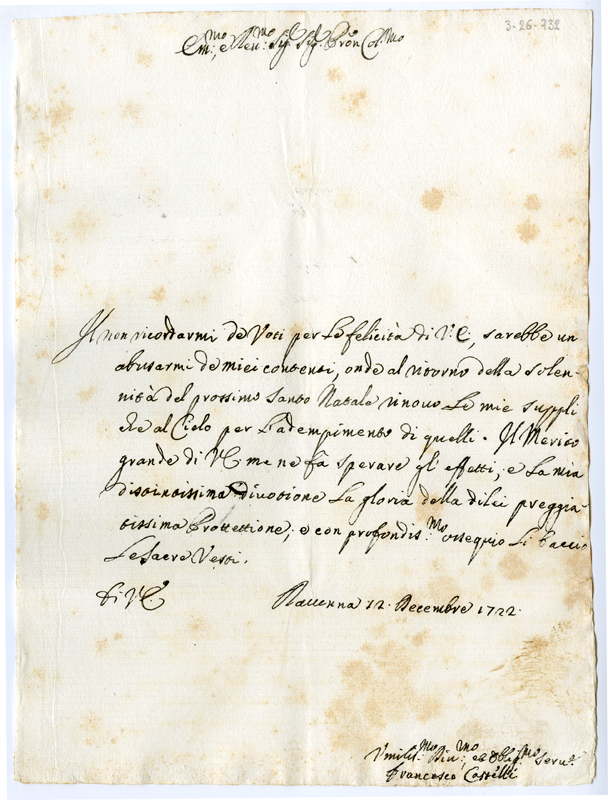 3-26-732
Em:mo, e Reu:mo Sig.r Sig.r Pron Col.mo
Il non ricordarmi de Voti per Le felicità di V: E:, sarebbe un
abusarmi de miei contenti, onde al ritorno della solen-
nità del prossimo Santo Natale rinouo Le mie suppli
che al Cielo per L'adempimento di quelli. Il Merito
grande di V: E: me ne fà sperare gl'effetti, e La mia
distintissima diuotione La gloria della di lei preggia-
tissima Protettione; e con profondis.mo ossequio Li baccio
Le Sacre Vesti.
Di V: E:
Rauenna 12. Decembre 1722.
Vmilis.mo Diu:mo, ed Obblig.mo Seru.e
Francesco Castelli